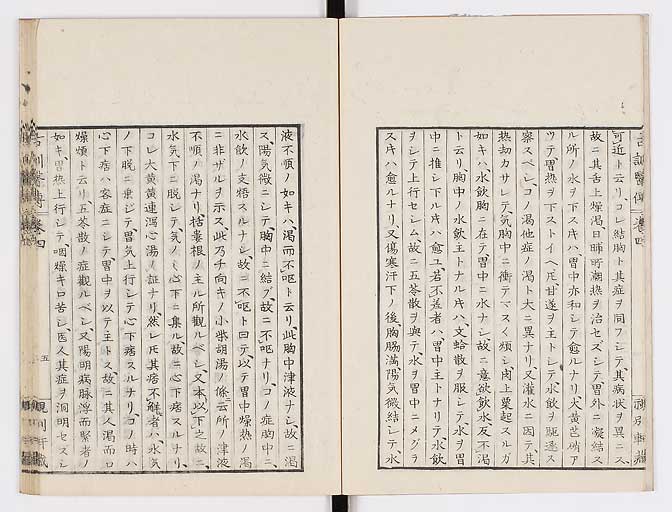 可近ト云リ、コレ結胸ト其症ヲ同フシテ、其病状ヲ異ニス、
故ニ其舌上燥渇、日晡所潮熱ヲ治セズシテ、胃外ニ凝結ス
ル所ノ水ヲ下スキハ、胃中亦和シテ愈ルナリ、大黄芒硝ア
ツテ胃熱ヲ下ストイヘ𪜈、甘遂ヲ主トシテ水飲ヲ駆逐ス
察スベシ、コノ渇他症ノ渇ト大ニ異ナリ、又灌水ニ因テ、其
熱劫カサレテ、気胸中ニ衝テマスく煩シ、肉上粟起スルガ
如キハ、水飲胸ニ在テ胃中ニ水ナシ、故ニ意欲飲水、反不渇
ト云リ、胸中ノ水飲主トナルキハ、文蛤散ヲ服シテ、水ヲ胃
中ニ推シ下ルキハ愈ユ、若不差者ハ、胃中主トナリテ水飲
ヲシテ上行セシム、故ニ五苓散ヲ與テ、水ヲ胃中ニメグラ
スキハ愈ルナリ、又傷寒汗下ノ後、胸脇満陽気微結シテ、水
液不順ノ如キハ、渇而不呕ト云リ、此胸中津液ナシ、故ニ渇
ス、陽気微ニシテ胸中ニ結グ、故ニ不呕ナリ、コノ症胸中ニ
水飲ノ支牾スルナシ、故ニ不呕ト曰テ、以テ胃中燥熱ノ渇
ニ非ザルヲ示ス、此乃チ向キノ小柴胡湯ノ條ニ云所ノ津液
不順ノ渇ナリ、栝蔞根ノ主ル所觀ルベシ、又本以下之故ニ、
水気下ニ脱シテ、気ノミ心下ニ集ル、故ニ心下痞スルナリ、
コレ大黄黄連瀉心湯ノ証ナリ、然レ𪜈其痞不解者ハ、水気
ノ下脱ニ乗ジテ、胃気上行シテ心下痞スルナリ、コノ時ハ
心下痞ハ客症ニシテ、胃中ヲ以テ主トス、故ニ其人渇而口
燥煩ト云リ、五苓散ノ症觀ルベシ、又陽明病脉浮而緊者ノ
如キ、胃熱上行シテ、咽燥キ口苦シ、医人其症ヲ洞明セズシ
五